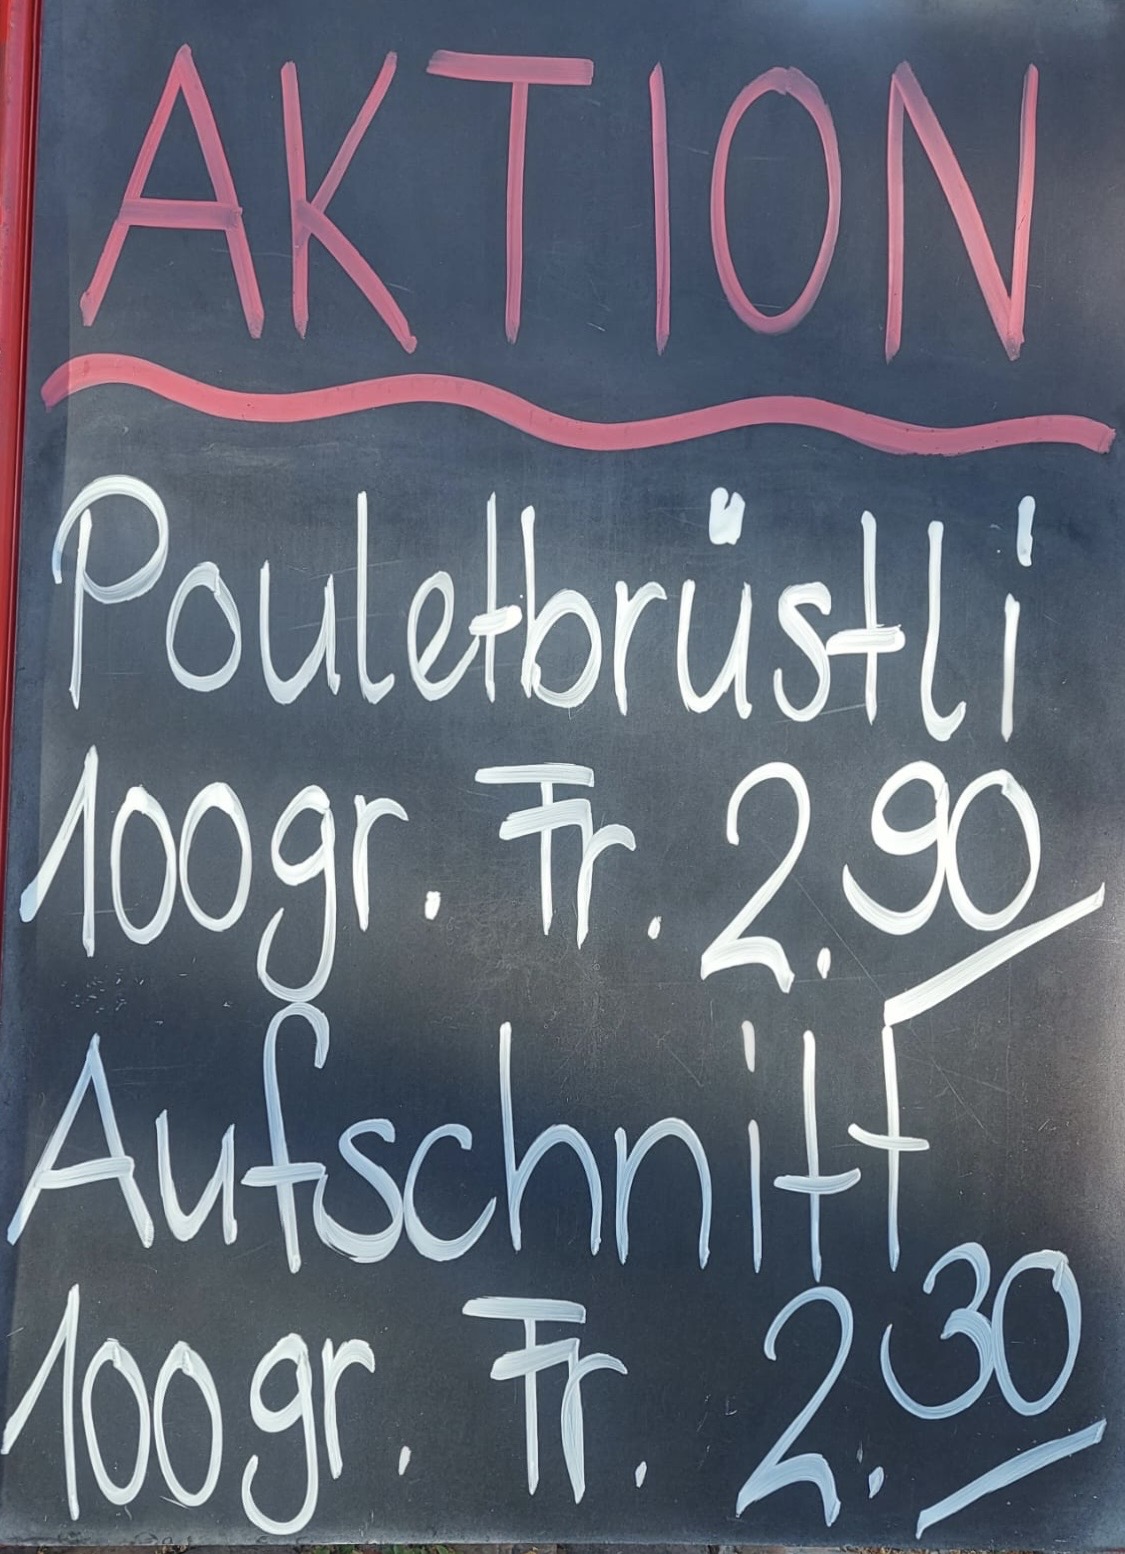 AKTION
Pouletbrüstli
100gr. Fr. 2.90
Aufschnitt
100gr. Fr. 2.30